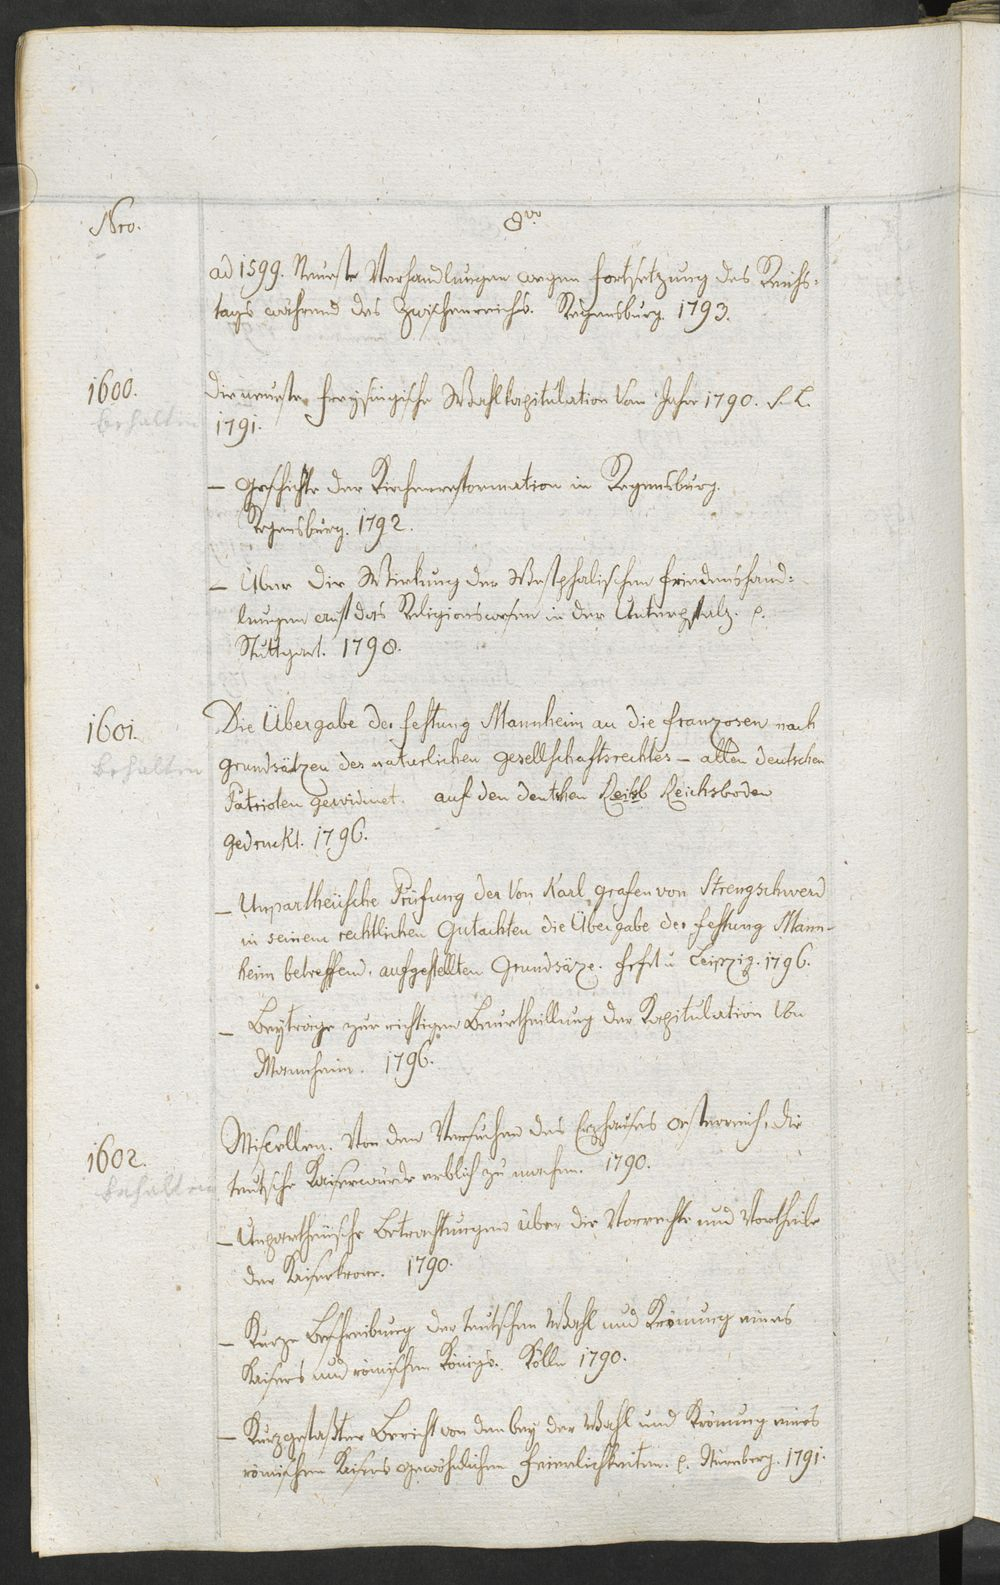 Nro.
8vo
ad 1599. Neueste Verhandlungen wegen Fortsetzung des Reichs-
tags während des Zwischenreichs. Regensburg. 1793.
1600. Die neueste freysingische Wahlkapitulation vom Jahre 1790. s. L.
behalten 1791.
– Geschichte der Kirchenreformation in Regensburg.
Regensburg. 1792.
– Über die Wirkung der Westphalischen Friedenshand-
lungen auf das Religionswesen in der Unterpfalz. p.
Stuttgart. 1798.
1601. Die Übergabe der Festung Mannheim an die Franzosen nach
behalten Grundsätzen des naturlichen Gesellschaftsrechtes – allen deutschen
Patrioten gewidmet. auf den deutschen Reichsb Reichsboden
gedruckt. 1796.
– Unpartheüsche Prüfung der von Karl Grafen von Strengschwerd
in seinem rechtlichen Gutachten die Übergabe der Festung Mann-
heim betreffend. aufgestellten Grundsäze. u Leipzig. 1796.
– Beyträge zur richtigen Beurtheillung der Kapitulation von
Mannheim. 1796.
1602. Miscellen. Von den Versuchen des Erzhauses Oesterreich, die
behalten teutsche Kaiserwürde erblich zu machen. 1790.
– Unpartheüsche Betrachtungen über die Vorrechte und Vortheile
der Kaiserkrone. 1790.
– Kurze Beschreibung der teutschen Wahl und Krönung eines
Kaisers und römischen Königs. Kölln 1790.
– Kurzgefaßter Bericht von den bey der Wahl und Krönung eines
römischen Kaisers gewöhnlichen Feierlichkeiten. p. Nürnberg. 1791.